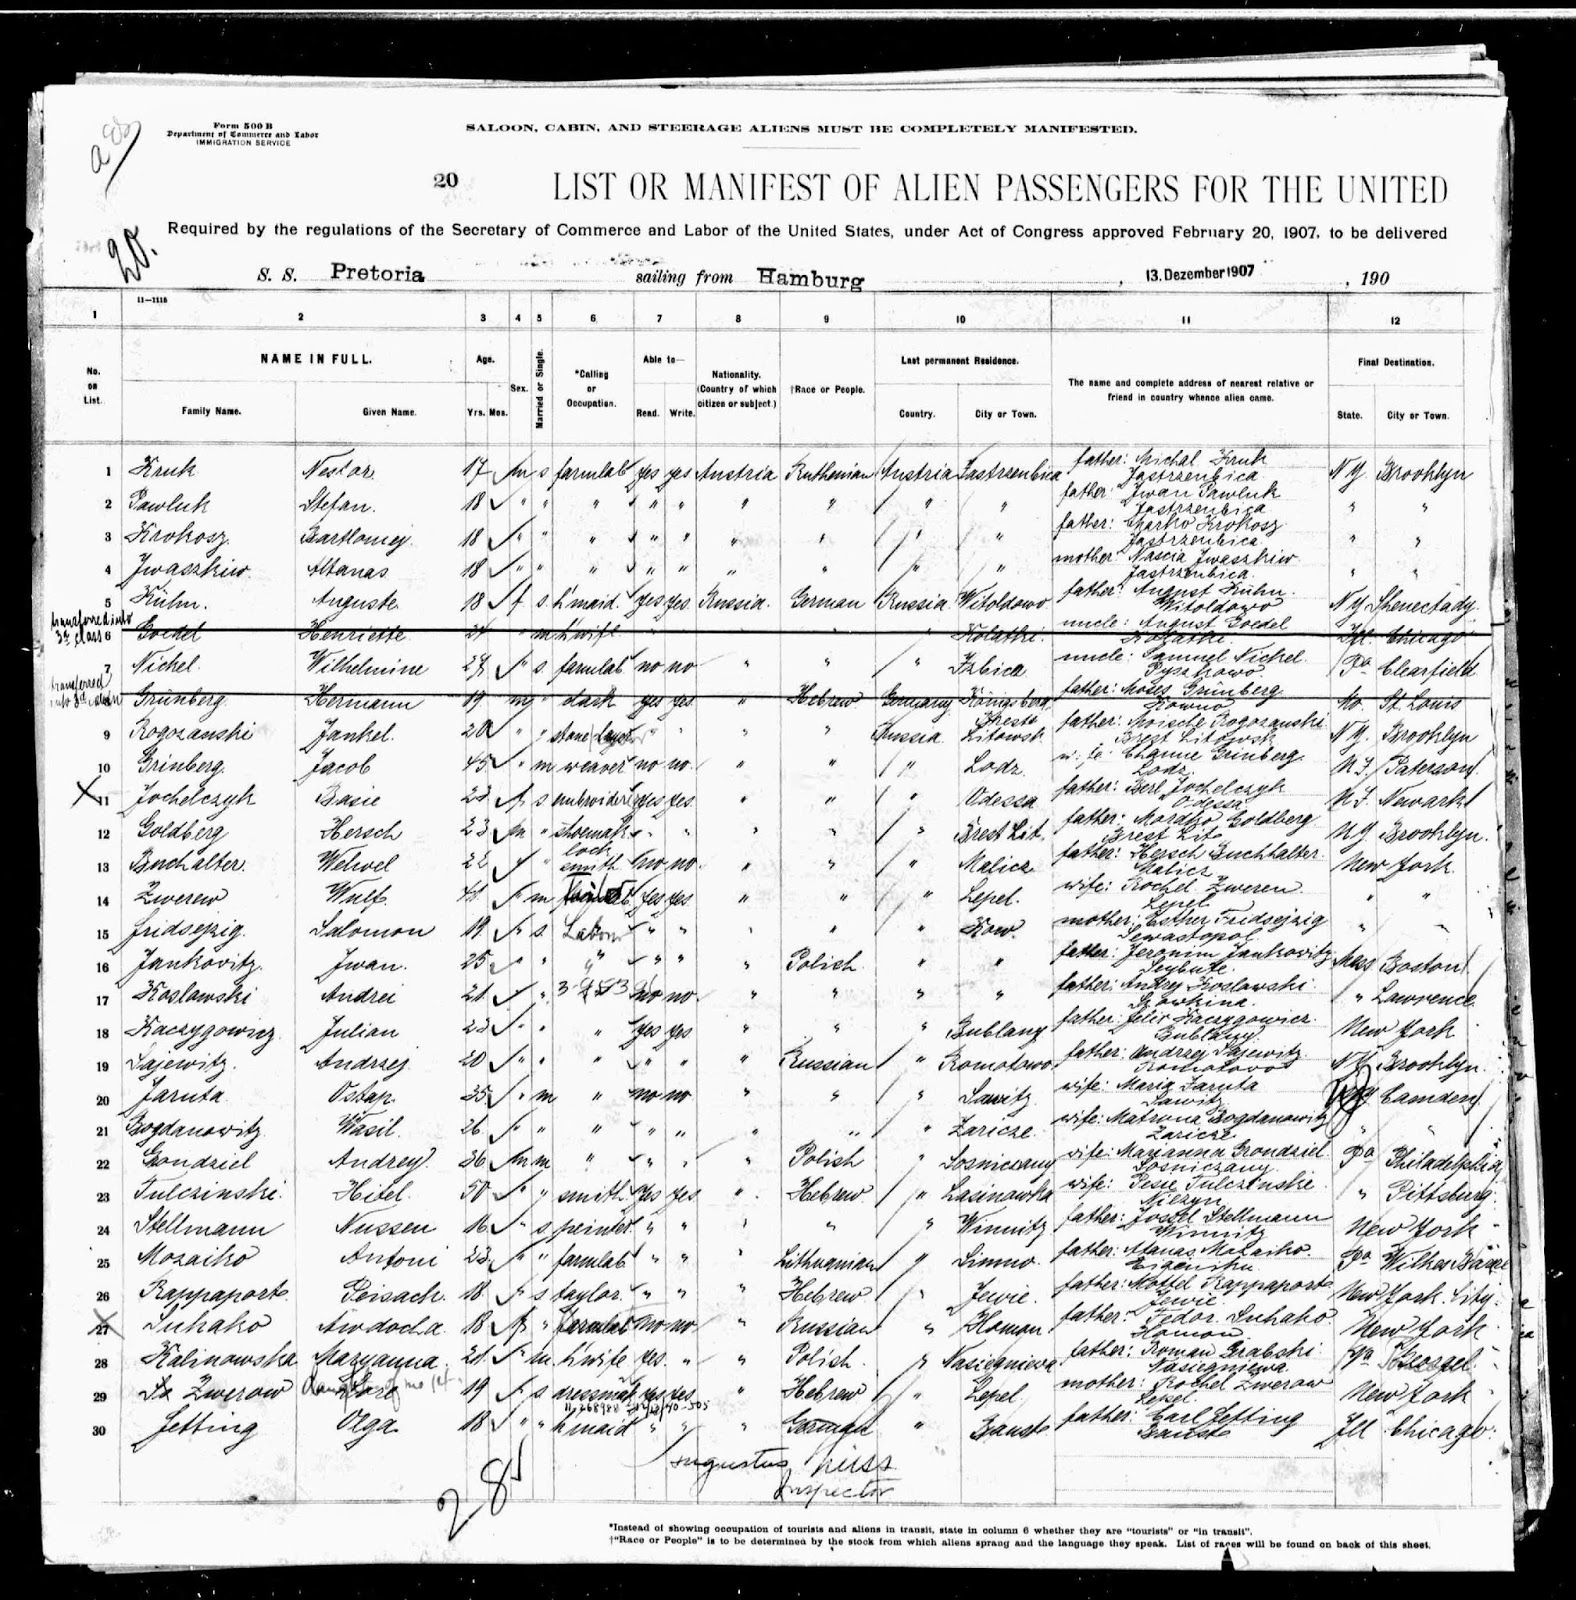 Form 500 B
Department of Commerce and Labor
IMMIGRATION SERVICE
SALOON, CABIN, AND STEERAGE ALIENS MUST BE COMPLETELY MANIFESTED.
20
LIST OR MANIFEST OF ALIEN PASSENGERS FOR THE UNITED
20.
Required by the regulations of the Secretary of Commerce and Labor of the United States, under Act of Congress approved February 20, 1907, to be delivered
S. S. Pretoria sailing from Hamburg, 13. Dezember 1907, 190
11-1115
1 2 3 4 5 6 7 8 9 10 11 12
No. on List. NAME IN FULL. Family Name. Given Name. Age. Yrs. Mos. Sex. Married or Single. *Calling or Occupation. Able to— Read. Write. Nationality. (Country of which citizen or subject.) †Race or People. Last permanent Residence. Country. City or Town. The name and complete address of nearest relative or friend in country whence alien came. Final Destination. State. City or Town.
1 Kruk Nestor 17 m s farmlab yes yes Austria Ruthenian Austria Jastrzenbica father: Michal Kruk Jastrzenbica N.Y. Brooklyn
2 Pawluk Stefan. 18 " " " " " " " " " father: Iwan Pawluk Jastrzenbica " "
3 Krokosz Bartlomiej 18 " " " " " " " " " father: Marko Krokosz Jastrzenbica " "
4 Iwaszkiw Atanas 18 " " " " " " " " " mother: Nascia Iwaszkiw Jastrzenbica " "
5 Kühn. Auguste 18 f s. h'maid. yes yes Russia. German Russia Witoldowo father: August Kühn. Witoldowo N.Y. Shenectady
transferred into 3d class
6 Goedel Henriette 24 " m h'wife " Kolatki uncle: August Goedel Kolatki Ill. Chicago
7 Nickel. Wilhelmine 24 " s. farmlab no no " " " Izbica uncle: Samuel Nickel. Pa Clearfield
transferred into 3d class
8 Grünberg. Hermann 19 clerk yes yes " Hebrew Germany Königsberg father: Moses Grünberg Kowno Mo. St. Louis
9 Rogozanski Jankel. 20 " " " " Russia Brest Litowsk father: Moische Rogozanski Brest Litowsk N.Y. Brooklyn
10 Grinberg. Jacob 45 " m weaver no no " " " Lodz wife: Grinberg Lodz N.J. Paterson
11 Jochelczyk Basie 23 f s yes yes " " " Odessa father: Berl Jochelczyk Odessa N.J. Newark
12 Goldberg Hersch 23 m " shoemak " " " " " Brest Lit. father: Mordko Goldberg Brest Lit. N.Y. Brooklyn.
13 Buchalter. Welwel 22 " lock smith no no " " " Malicz father: Hersch Buchhalter. Malicz New York
14 Zwerew Wulf m yes yes " " " Lepel. wife: Rochel Zweren Lepel " "
15 Fridsejzig. Salomon 19 " s " " " " " Kow. mother: Esther Fridsejzig Sewastopol " "
16 Jankovitz. Iwan. 25 " " " " " " Polish " " father: Jeronim Jankovitz Mass Boston
17 Koslawski Andrei 21 " no no " " " " father: Andrey Koslawski. " Lawrence
18 Kaczygowicz Julian 23 " " " yes yes " " " Bublany father: Felix Kaczygowicz Bublany. New York
19 Sajewitz. Andrzej 20 " " " " " " Russian " Romotowo father: Andrzej Sajewitz. Romotowo N.Y. Brooklyn.
20 Jaruta. Ostap. 35 " m " no no " " " Sawitz wife: Maria Jaruta Sawitz Camden
21 Bogdanowitz Wasil. 26 " " " " " " " " Zaricze. wife: Matrona Bogdanowitz Zaricze " "
22 Gondziel Andrey. 36 m m " " " " Polish " Sosniczany wife: Marianna Grondziel Sosniczany. Pa Philadelphia
23 Tulczinski. Hitel 50 " " smith yes yes " Hebrew " Lasinowka wife: Pesie Tulczinski. Niezyn " Pittsburg.
24 Stellmann Nussen 16 " s peinter " " " " " Winnitz father: Jossel Stellmann Winnitz New York "
25 Mozaiko Antoni 23 " " farmlab " " " Lithuanian " Simno. father: Atanas Mozaiko. Pa Wilkes Barre
26 Rappaport. Peisach. 18 " s taylor. " " " Hebrew " Jewie. father: Mottel Rappaport Jewie. New York City.
27 Suhako Awdocha 18 f " farmlab no no " Russian " Homon father: Fedor Suhako Homon. New York
28 Kalinowska Maryanna. 21 " m. h'wife yes. " " Polish. " Nasiegniewa father: Roman Grabski Nasiegniewa. Pa
29 Zwerow 19 " s dressmak yes yes " Hebrew " Lepel mother: Rochel Zwerow Lepel. New York
30 Jetting Olga 18 " " h'maid " " " German " Bauste father: Carl Jetting Bauste Ill Chicago.
28
Augustus
Inspector
*Instead of showing occupation of tourists and aliens in transit, state in column 6 whether they are "tourists" or "in transit".
†"Race or People" is to be determined by the stock from which aliens sprang and the language they speak. List of races will be found on back of this sheet.